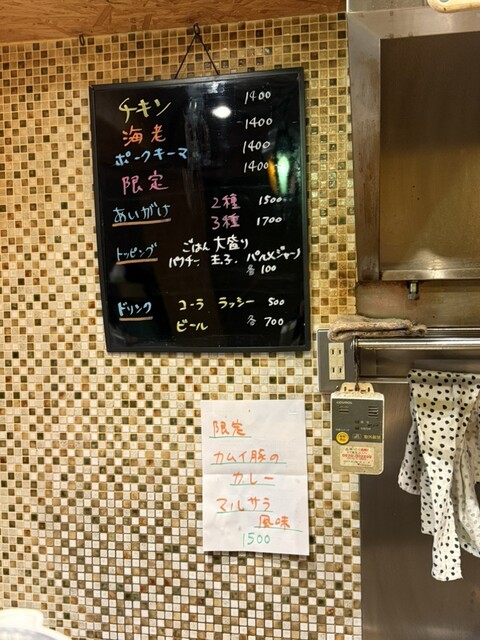 チキン 1400
海老 1400
ポークキーマ 1400
限定 1400
あいがけ 2種 1500
3種 1700
トッピング ごはん大盛り
パクチー、玉子、パルメジャーノ
各100
ドリンク コーラ ラッシー 500
ビール 各 700
限定
カムイ豚の
カレー
マルサラ
風味
1500